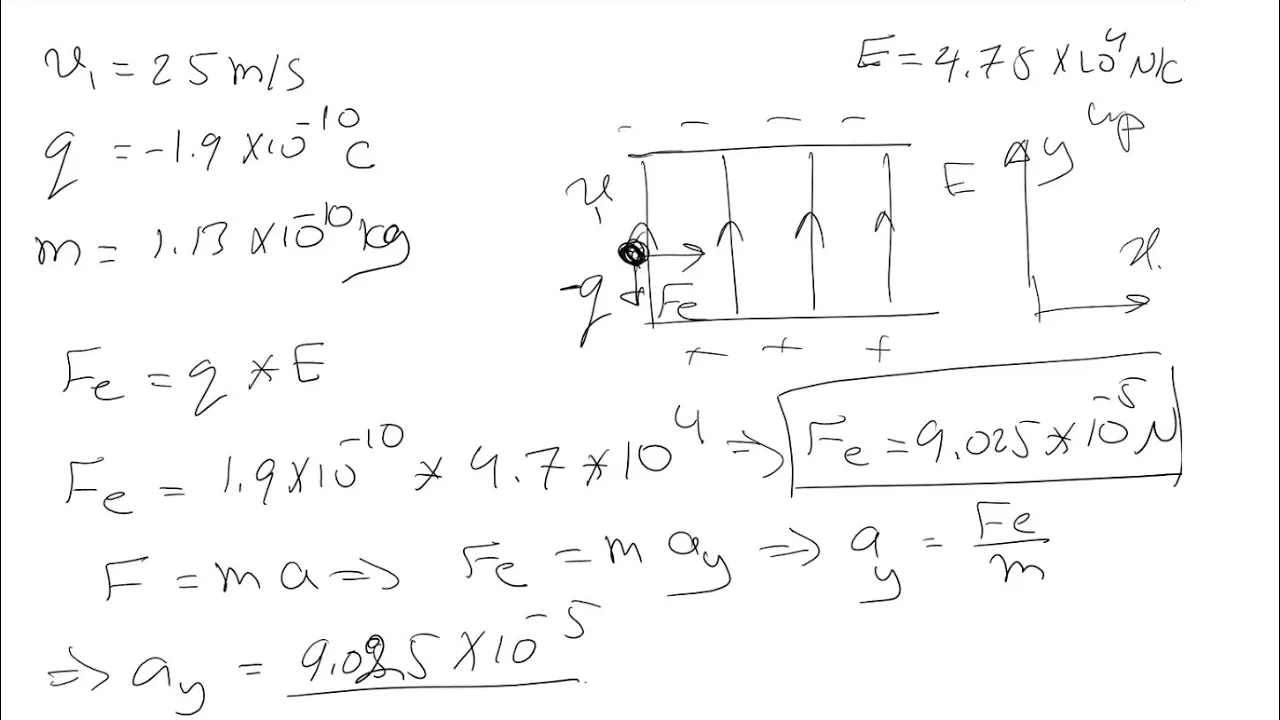 v₁ = 25 m/s
E = 4.75 × 10⁴ N/C
q = -1.9 × 10⁻¹⁰ C
m = 1.13 × 10⁻¹⁰ kg
- - - -
v₁
-q
Fe
E
y
up
x
+ + +
Fe = q * E
Fe = 1.9 × 10⁻¹⁰ * 4.7 * 10⁴ ⇒ Fe = 9.025 * 10⁻⁵ N
F = m a ⇒ Fe = m ay ⇒ ay = Fe/m
⇒ ay = 9.025 × 10⁻⁵